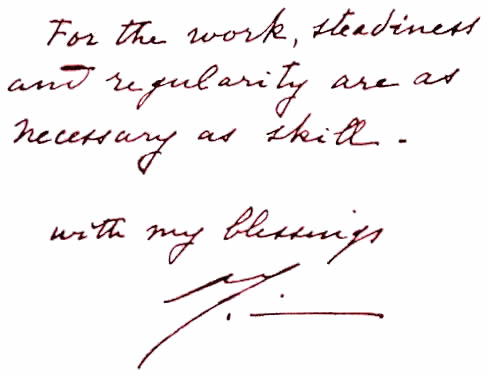 For the work, steadiness
and regularity are as
necessary as skill.
with my blessings